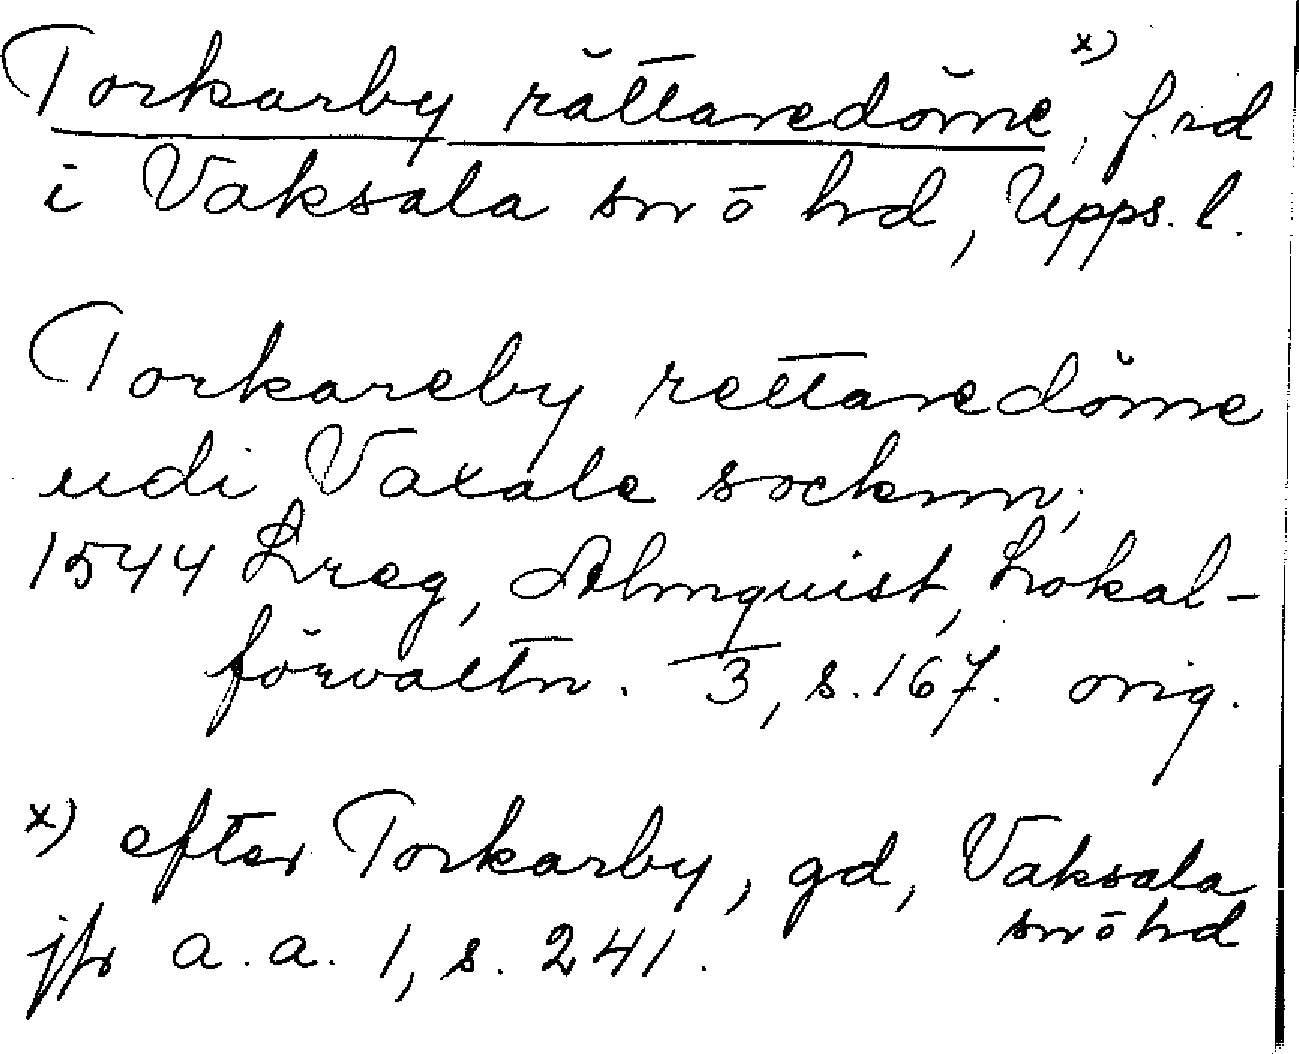 Torkarby rättaredöme x), f.rd
i Vaksala sn o hd, Upps. l.
Torkareby rettaredöme
udi Vaxale socknn;
1544 Lreg, Almquist, Lokal-
förvaltn. 3, s. 167. orig.
x) efter Torkarby, gd, Vaksala
sn o hd
jfr a.a. 1, s. 241.